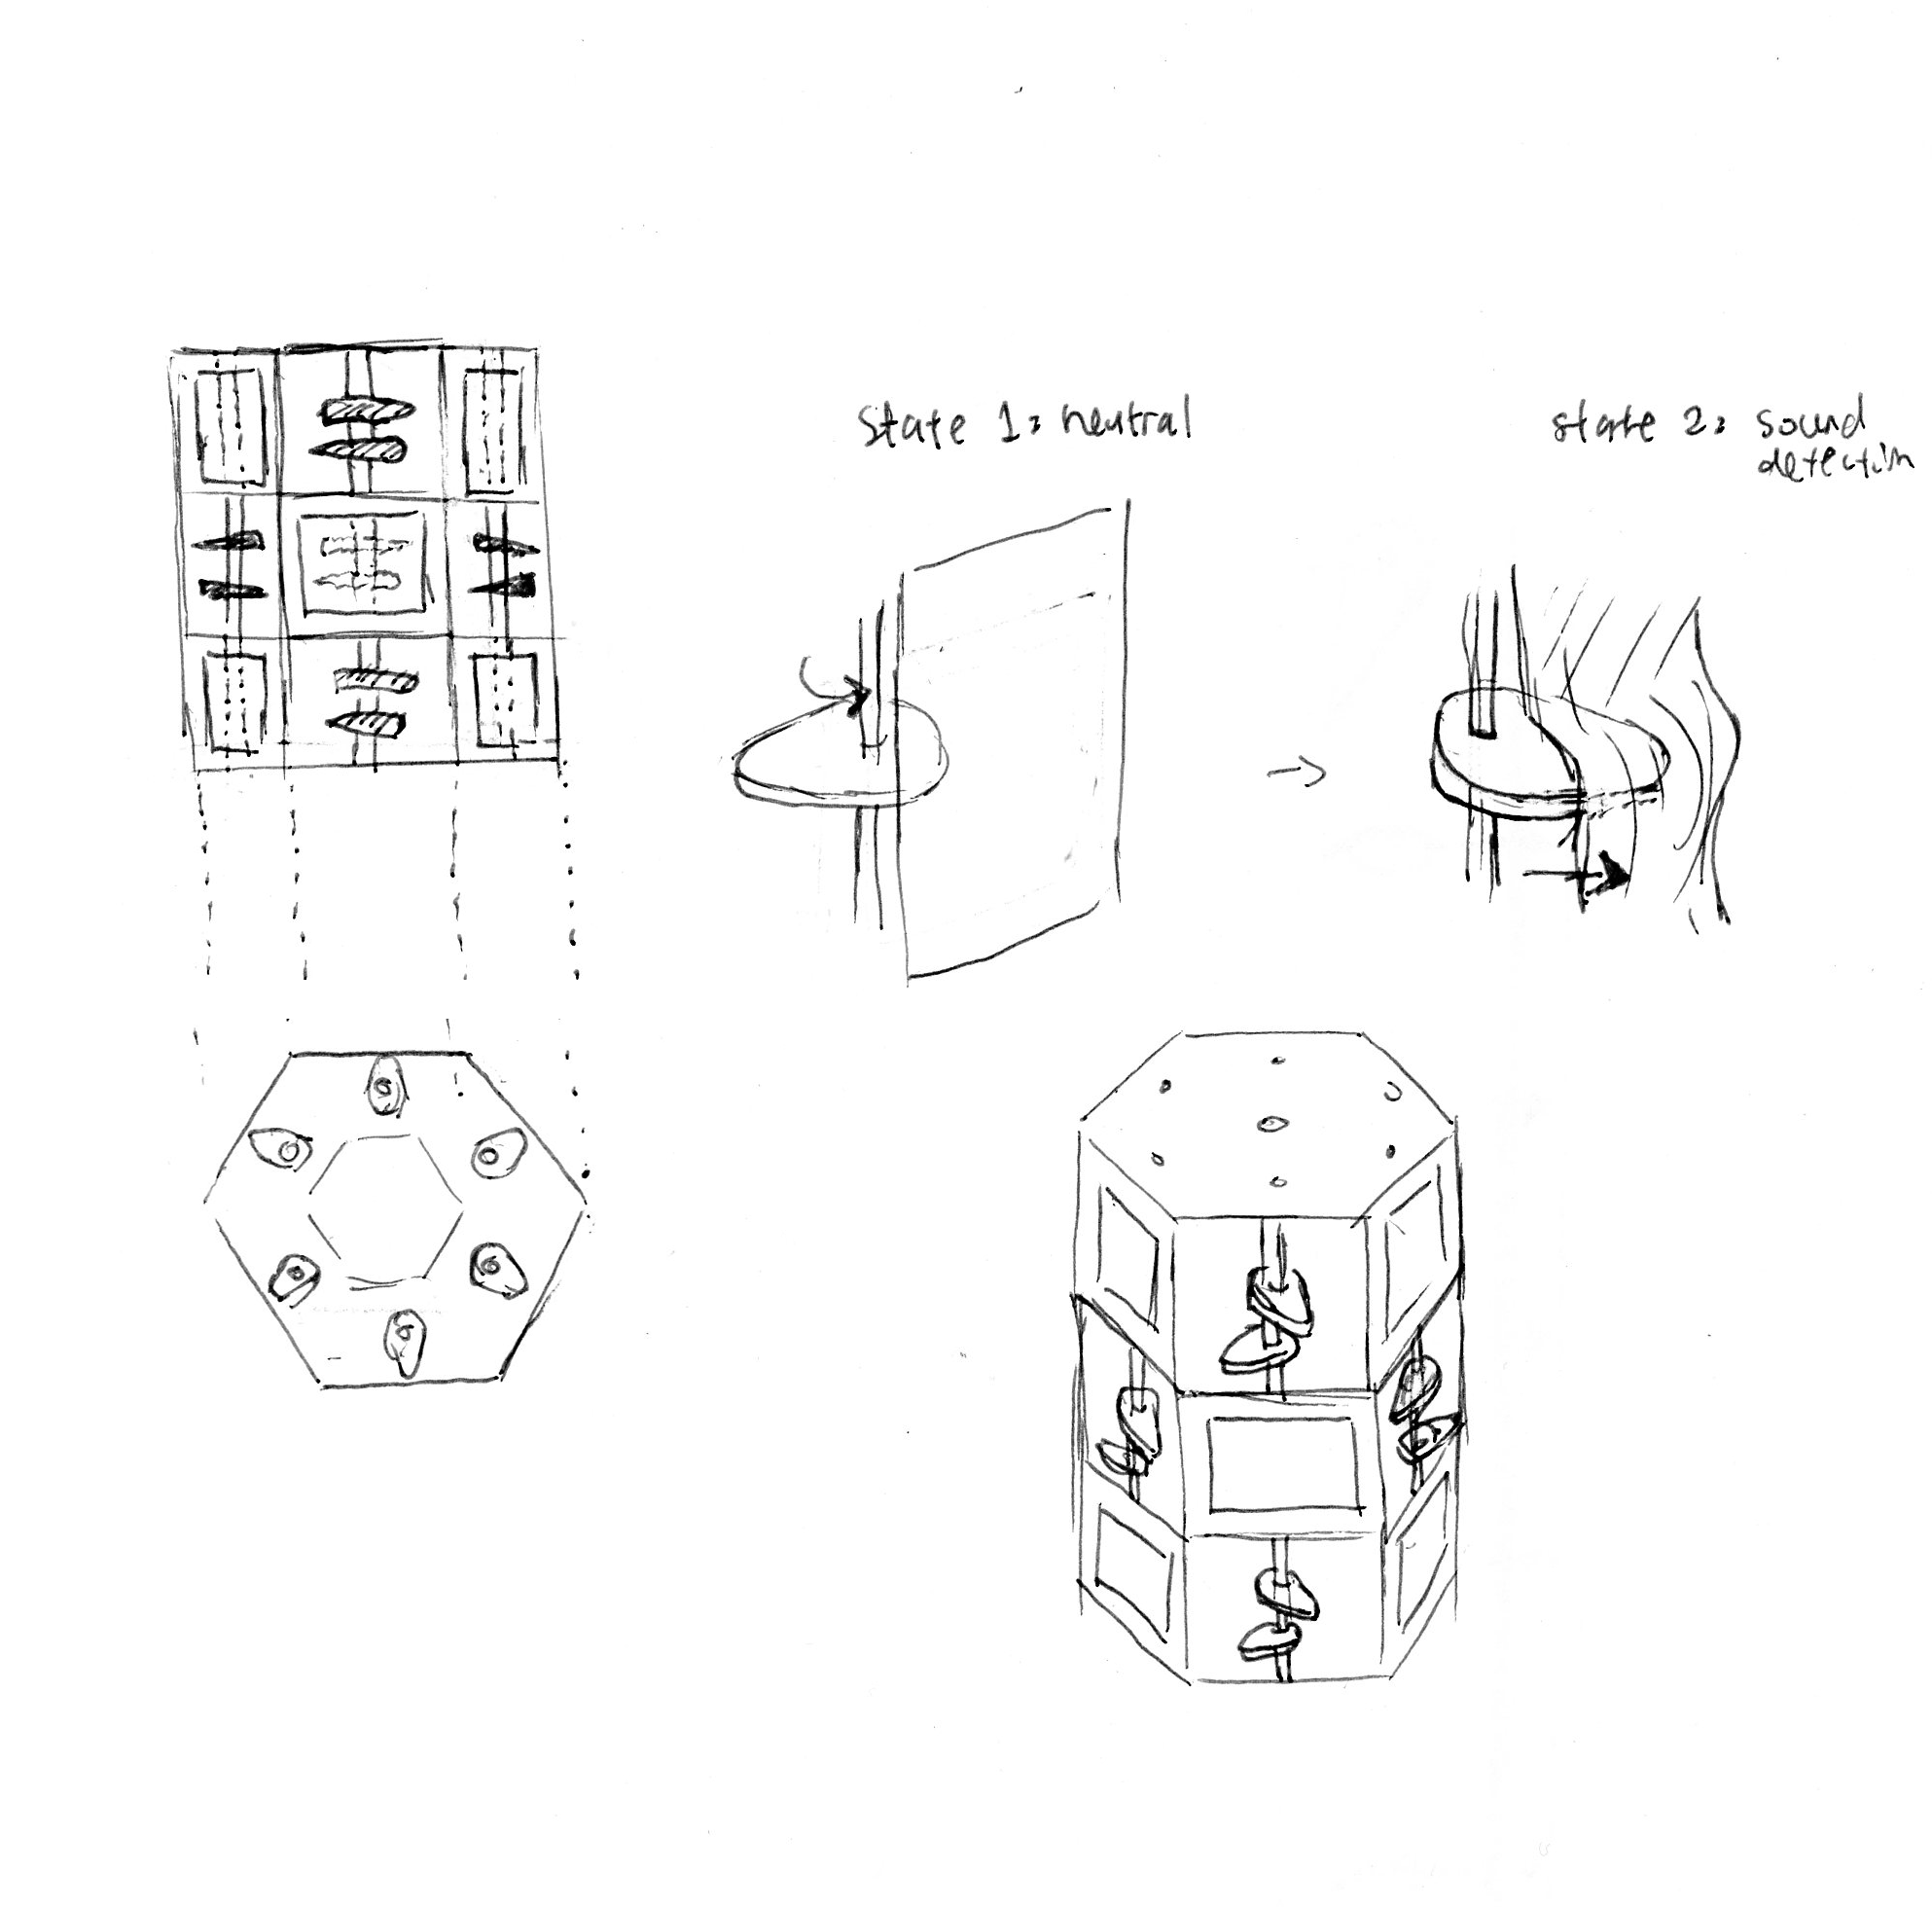 State 1: neutral
state 2: sound
detection